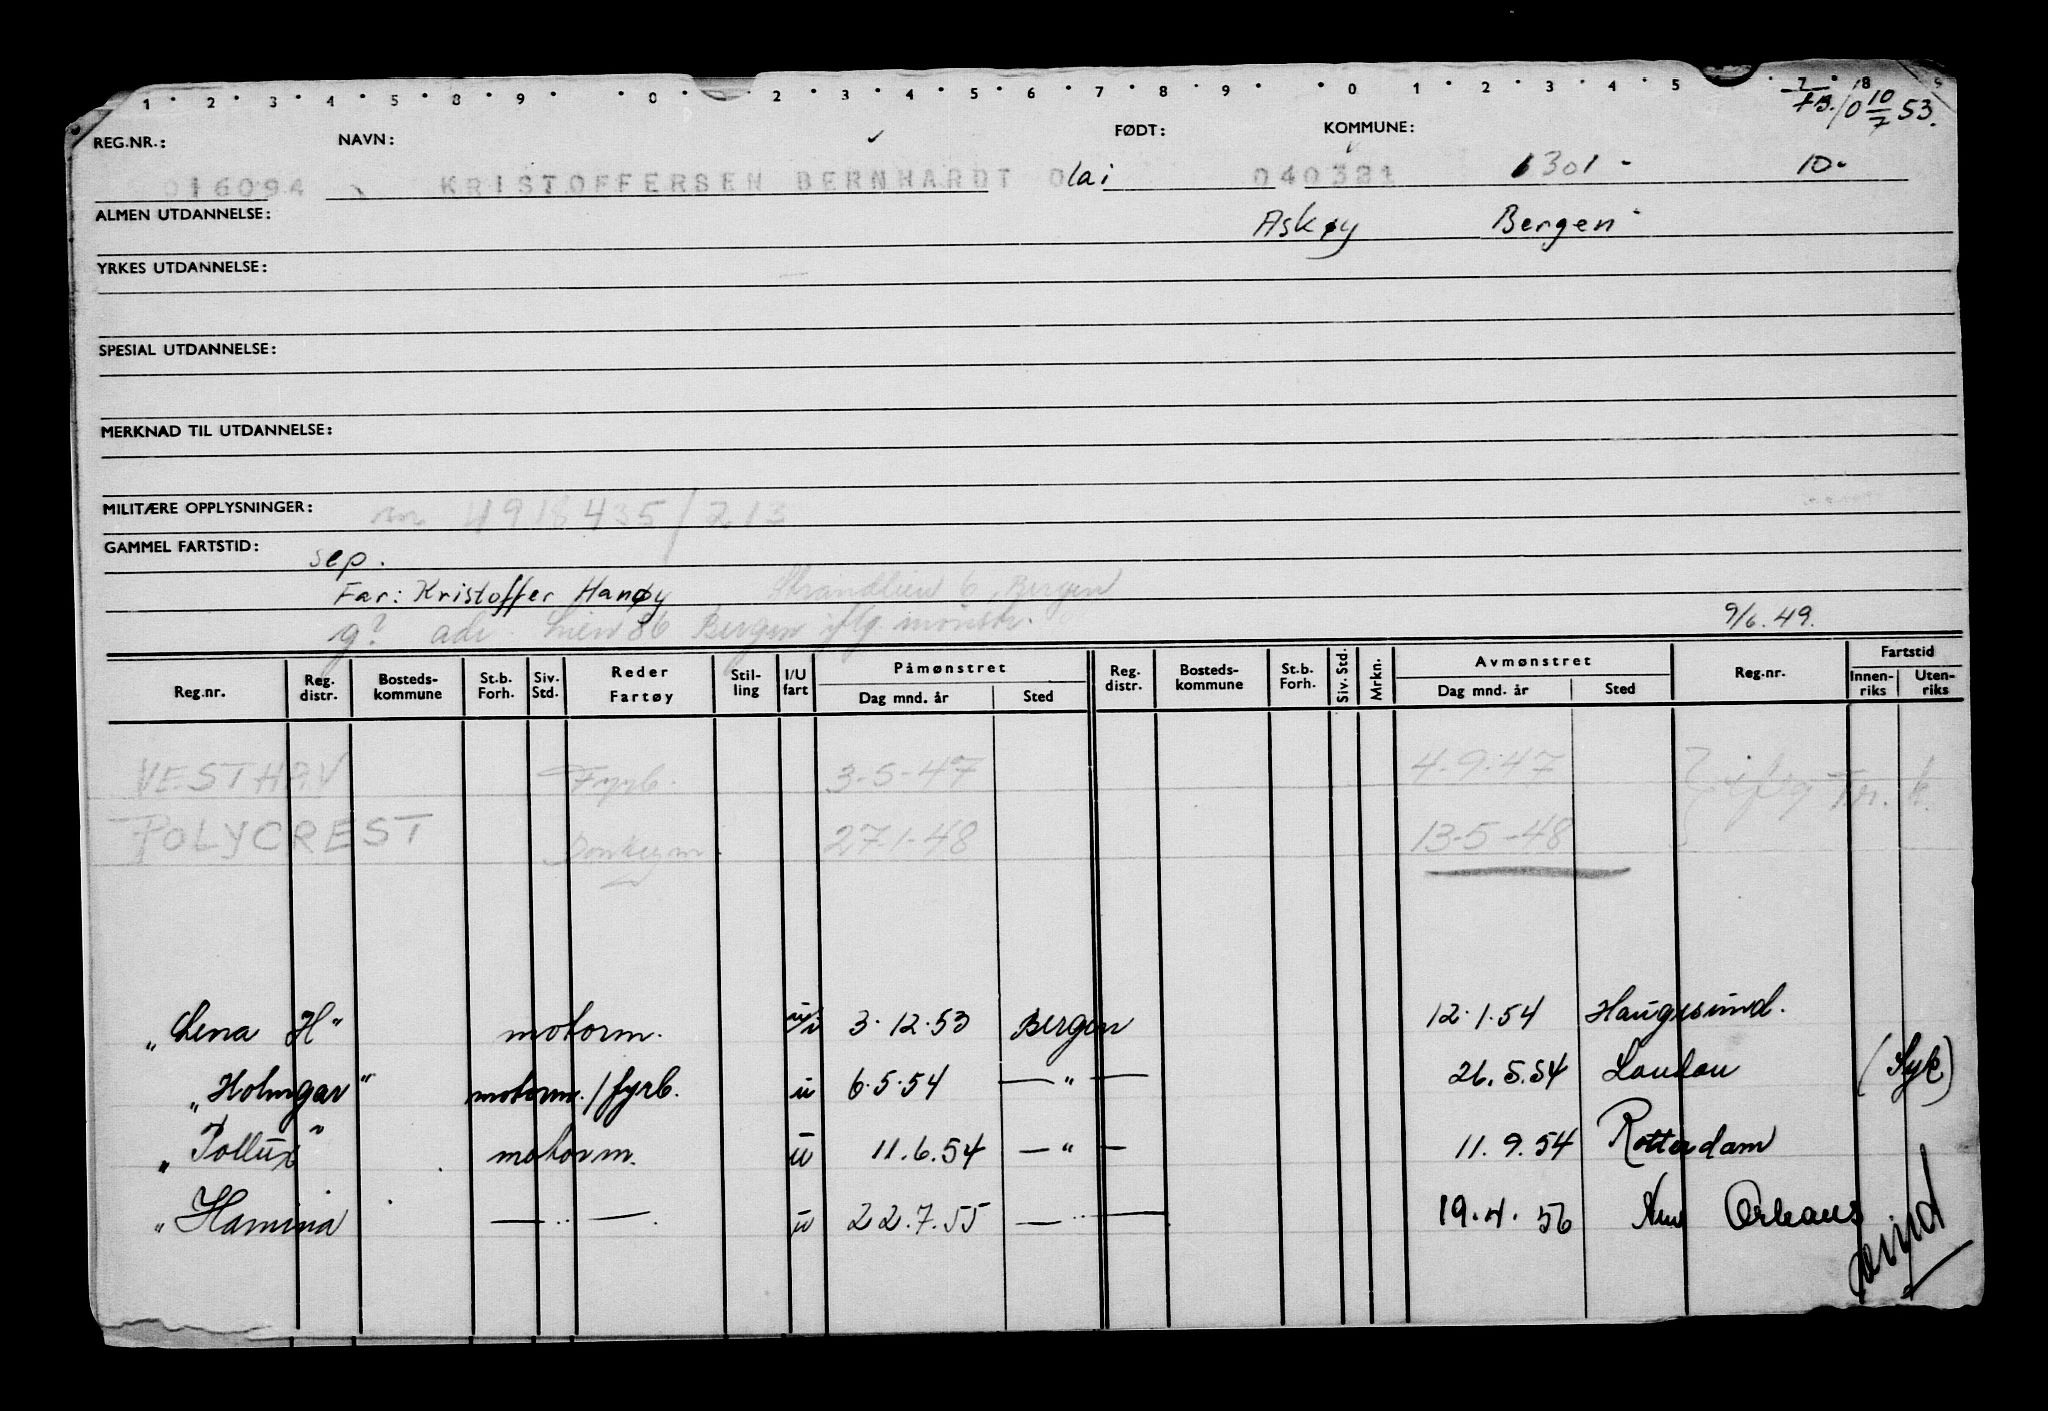 1 2 3 4 5 8 9 0 2 3 4 5 6 7 8 9 0 1 2 3 4 5 7 8 9
10/7 53.
REG.NR.: NAVN: FØDT: KOMMUNE:
016094 KRISTOFFERSEN BERNHARDT Olai 040321 1301 - 10-
ALMEN UTDANNELSE: Askøy Bergen
YRKES UTDANNELSE:
SPESIAL UTDANNELSE:
MERKNAD TIL UTDANNELSE:
MILITÆRE OPPLYSNINGER: 4918435/213
GAMMEL FARTSTID: sep.
Far: Kristoffer Hanøy Strandlien 6, Bergen
g? adr. Lien 86 Bergen iflg. mønstr. 9/6.49.
Reg.nr. Reg. distr. Bosteds-kommune St.b. Forh. Siv. Std. Reder Fartøy Stil-ling I/U fart Påmønstret Dag mnd. år Sted Reg. distr. Bosteds-kommune St.b. Forh. Siv. Std. Mrkn. Avmønstret Dag mnd. år Sted Reg.nr. Fartstid Innen-riks Uten-riks
VESTHAV Fyrb. 3-5-47 4-9-47 iflg
POLYCREST Donkeym. 27-1-48 13-5-48
"Lena H" motorm. u/i 3.12.53 Bergen 12.1.54 Haugesund.
"Holmgar" motorm./fyrb. u 6.5.54 — " — 26.5.54 London (Syk)
"Pollux" motorm. u 11.6.54 — " — 11.9.54 Rotterdam
"Hamina — " — u 22.7.55 — " — 19.4.56 New Orleans